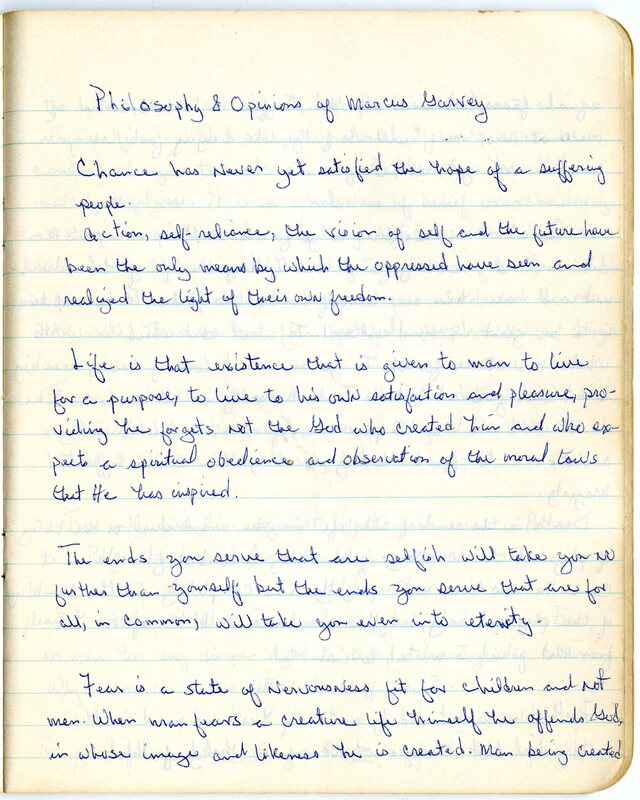 Philosophy & Opinions of Marcus Garvey
Chance has never yet satisfied the hope of a suffering
people.
Action, self-reliance, the vision of self and the future have
been the only means by which the oppressed have seen and
realized the light of their own freedom.
Life is that existence that is given to man to live
for a purpose, to live to his own satisfaction and pleasure, pro-
viding he forgets not the God who created him and who ex-
pects a spiritual obedience and observation of the moral laws
that He has inspired.
The ends you serve that are selfish will take you no
further than yourself; but the ends you serve that are for
all, in common, will take you even into eternity.
Fear is a state of nervousness fit for children and not
men. When man fears a creature life himself he offends God,
in whose image and likeness he is created. Man being created